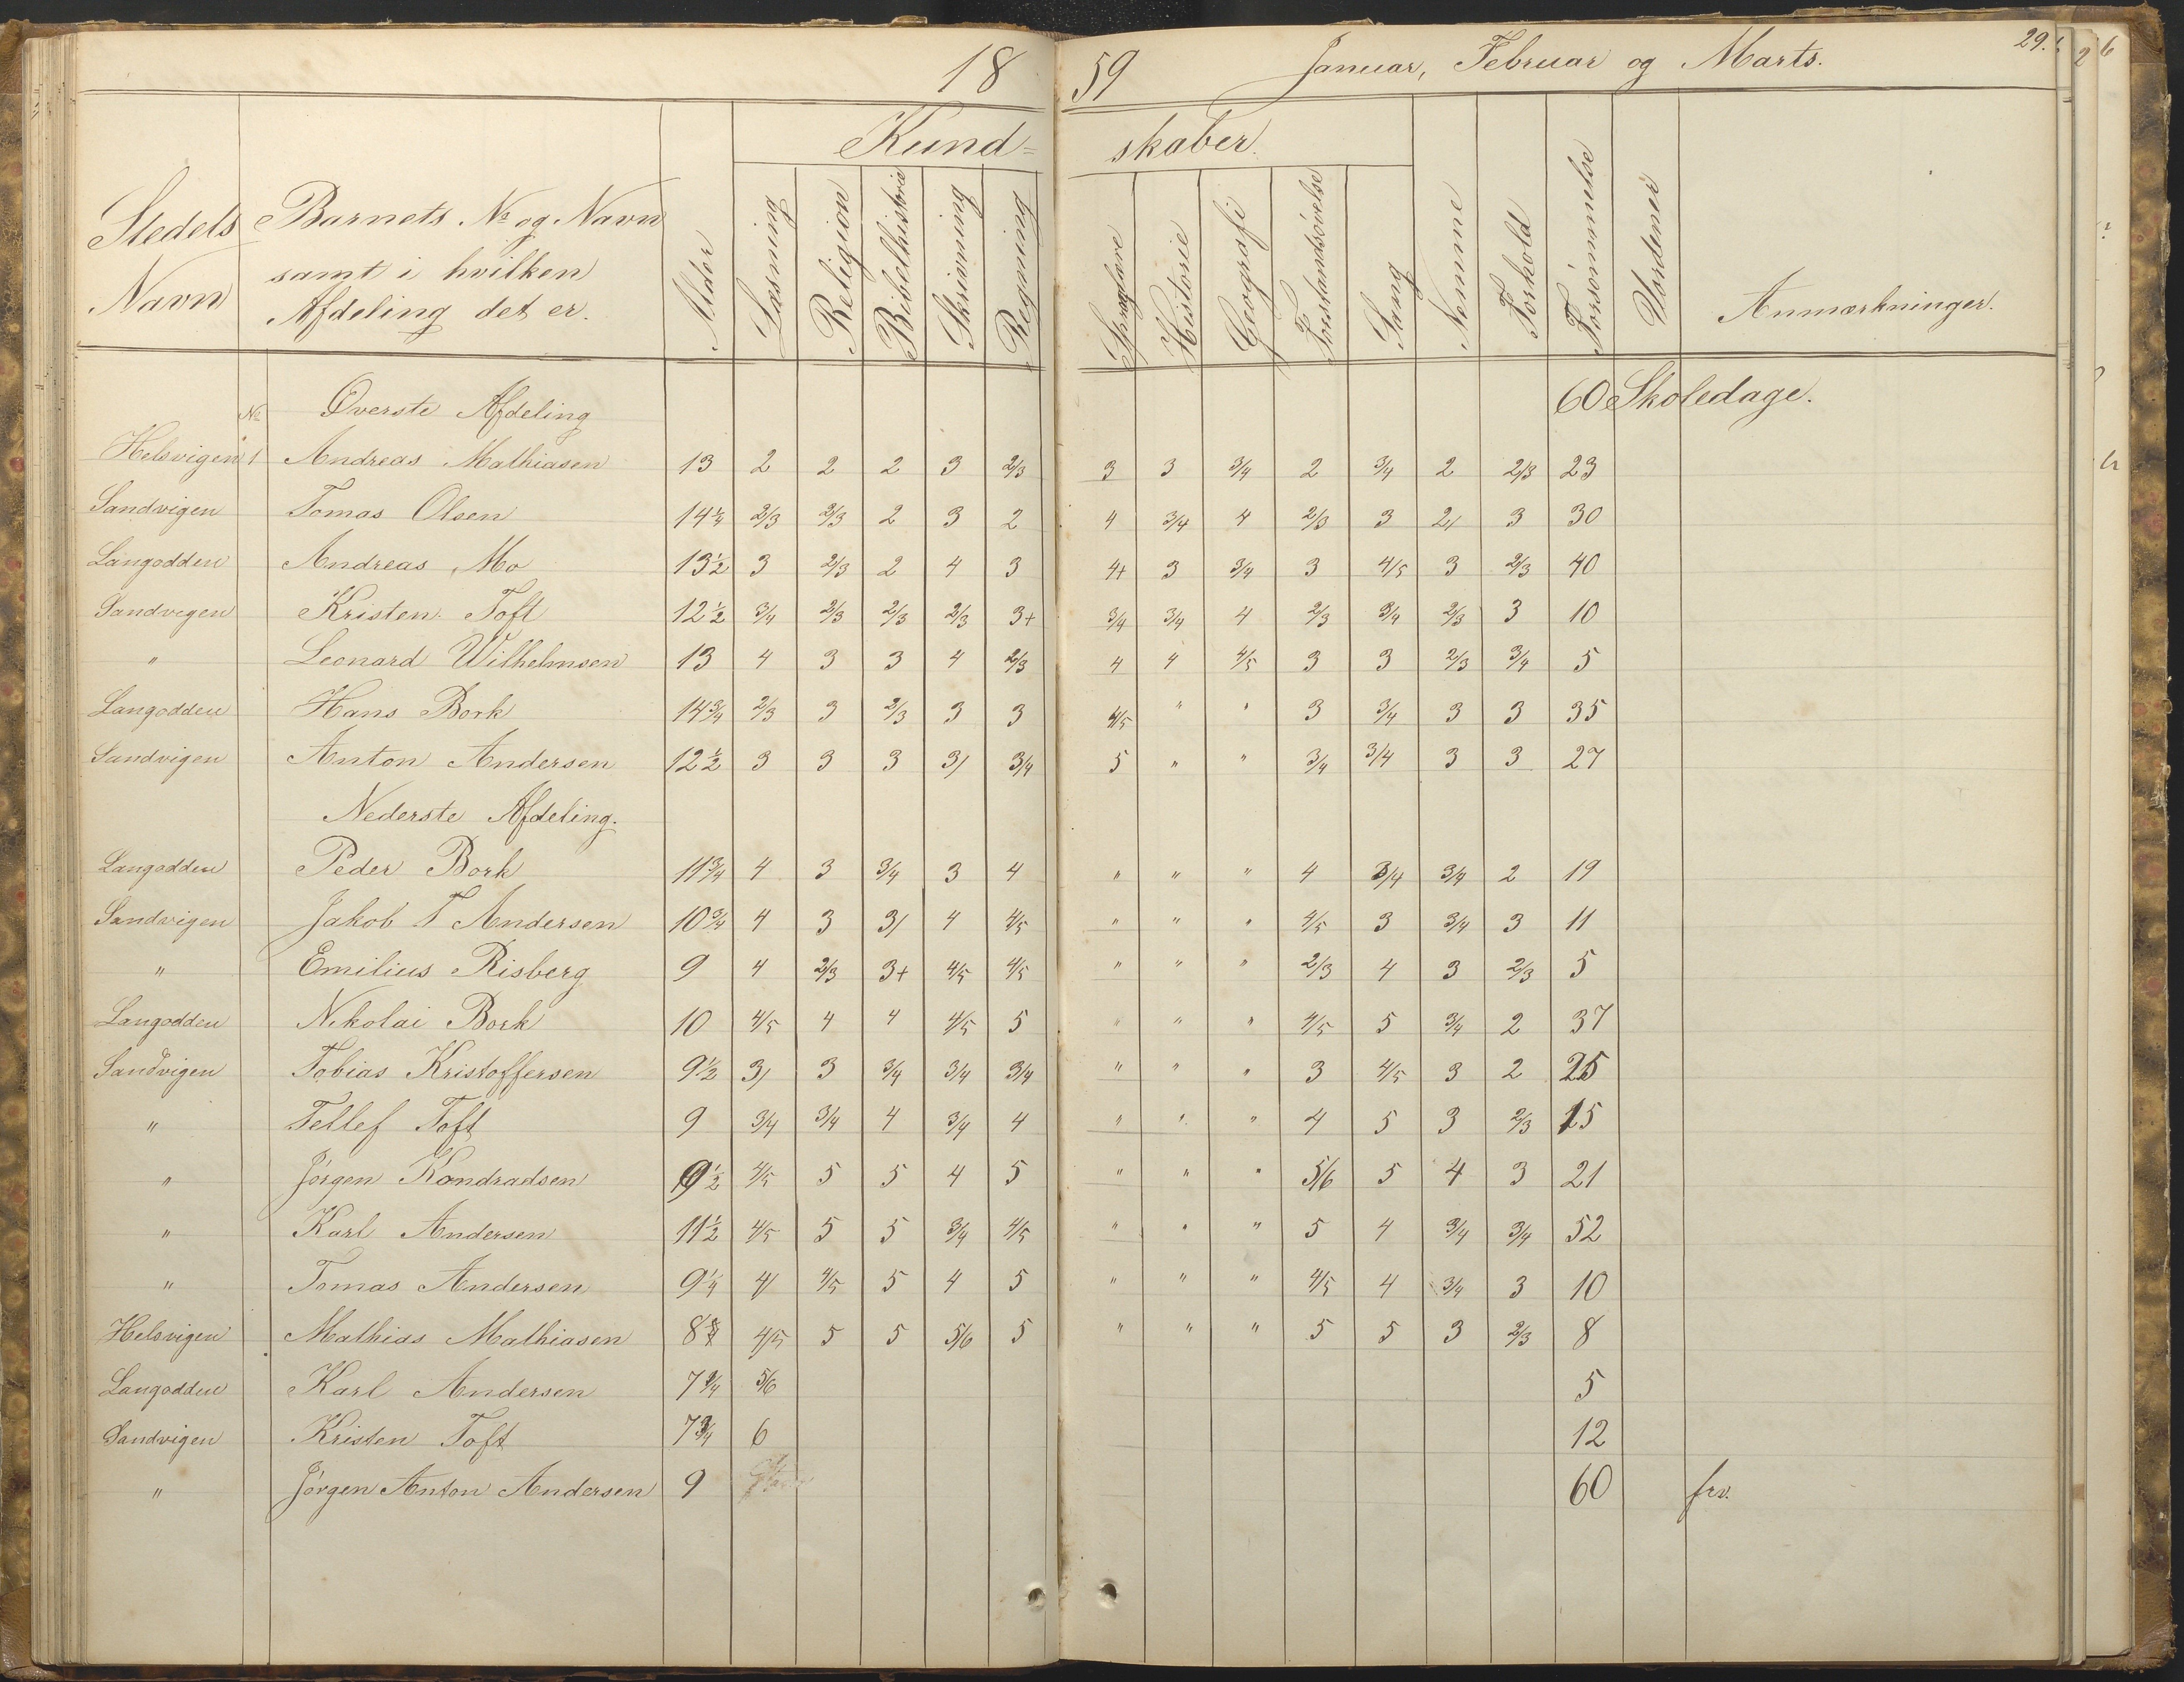 18 59 Januar, Februar og Marts. 29.
Kund= skaber.
Stedets Navn
Barnets No og Navn samt i hvilken Afdeling det er.
Alder
Læsning
Religion
Bibelhistorie
Skrivning
Regning
Sproglære
Historie
Geografi
Forstandsøvelse
Sang
Nemme
Forhold
Forsömmelse
Anmærkninger.
No Överste Afdeling 60 Skoledage.
Helsvigen 1 Andreas Mathiasen 13 2 2 2 3 2/3 3 3 3/4 2 3/4 2 2/3 23
Sandvigen Tomas Olsen 14 1/4 2/3 2/3 2 3 2 4 3/4 4 2/3 3 2/ 3 30
Langodden Andreas Mo 13 1/2 3 2/3 2 4 3 4+ 3 3/4 3 4/5 3 2/3 40
Sandvigen Kristen Toft 12 1/2 3/4 2/3 2/3 2/3 3+ 3/4 3/4 4 2/3 3/4 2/3 3 10
" Leonard Wilhelmsen 13 4 3 3 4 2/3 4 4 4/5 3 3 2/3 3/4 5
Langodden Hans Bork 14 3/4 2/3 3 2/3 3 3 4/5 " " 3 3/4 3 3 35
Sandvigen Anton Andersen 12 1/2 3 3 3 3/ 3/4 5 " " 3/4 3/4 3 3 27
Nederste Afdeling.
Langodden Peder Bork 11 3/4 4 3 3/4 3 4 " " " 4 3/4 3/4 2 19
Sandvigen Jakob T Andersen 10 3/4 4 3 3/ 4 4/5 " " " 4/5 3 3/4 3 11
" Emilius Risberg 9 4 2/3 3+ 4/5 4/5 " " " 2/3 4 3 2/3 5
Langodden Nikolai Bork 10 4/5 4 4 4/5 5 " " " 4/5 5 3/4 2 37
Sandvigen Tobias Kristoffersen 9 1/2 3/ 3 3/4 3/4 3/4 " " " 3 4/5 3 2 25
" Tellef Toft 9 3/4 3/4 4 3/4 4 " " " 4 5 3 2/3 15
" Jörgen Kondradsen 9 1/2 4/5 5 5 4 5 " " " 5/6 5 4 3 21
" Karl Andersen 11 1/2 4/5 5 5 3/4 4/5 " " " 5 4 3/4 3/4 52
" Tomas Andersen 9 1/4 4/ 4/5 5 4 5 " " " 4/5 4 3/4 3 10
Helsvigen Mathias Mathiasen 8 4/5 5 5 5/6 5 " " " 5 5 3 2/3 8
Langodden Karl Andersen 7 3/4 5/6 5
Sandvigen Kristen Toft 7 3/4 6 12
" Jörgen Anton Andersen 9 60 frv.